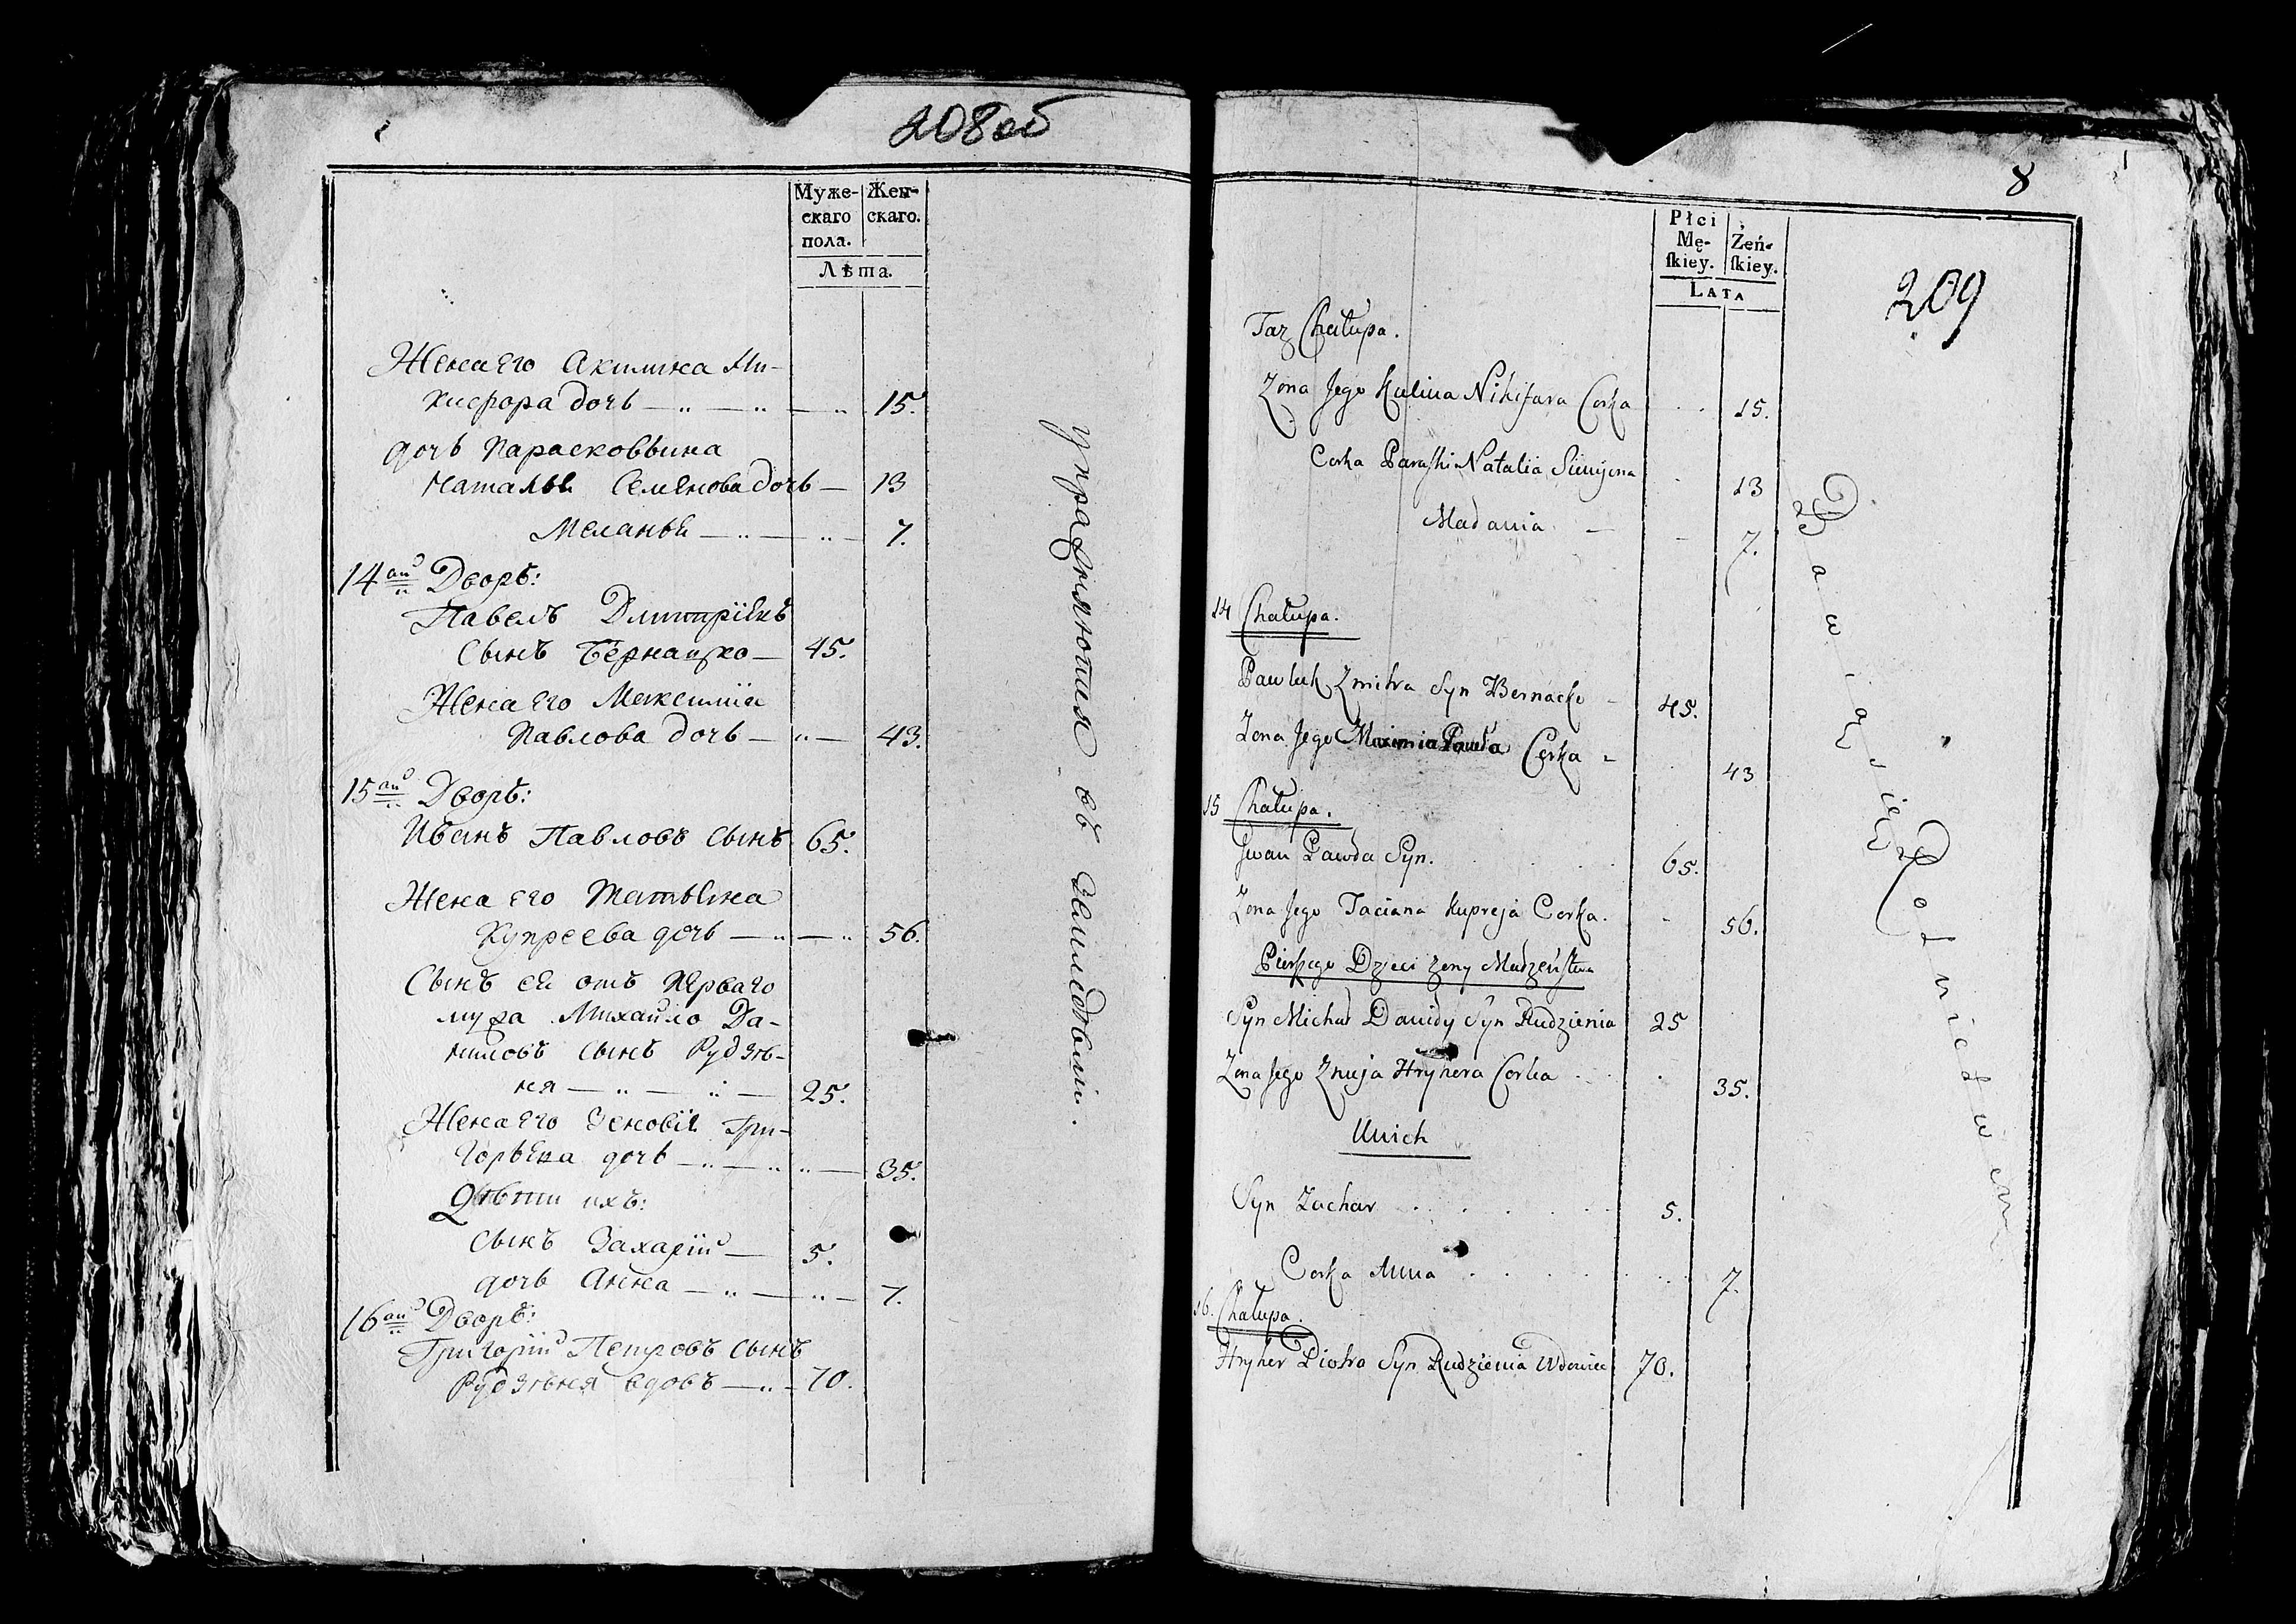 208 об
Муже-
скаго
пола.
Жен-
скаго.
Лѣта.
Жена его Акилина Ни-
кифора дочь — „ — „ — „ 15.
дочь Парасковьина
Наталья Семенова дочь — 13
Меланья — „ — „ — 7.
14ый Дворъ:
Павелъ Дмитріевъ
сынъ Бернацко — 45.
Жена его Максимія
Павлова дочь — „ — 43.
15ый Дворъ:
Иванъ Павловъ сынъ 65.
Жена его Татьяна
Купреева дочь — „ — „ 56.
Сынъ ея отъ перваго
мужа Михайло Да-
ниловъ сынъ Рудзѣ-
ня — „ — „ — 25.
Жена его Зеновія Гри-
горьева дочь — „ — „ „ — 35.
Дѣти ихъ:
сынъ Захарій — 5.
дочь Анна — „ — „ — 7.
16ый Дворъ:
Григорій Петровъ сынъ
Рудзѣня вдовъ — „ — 70.
упражняются въ земледѣліи.
8
209
Płci
Mę-
skiey.
Żeń-
skiey.
LATA
Taz Chałupa.
Zona Jego Kulina Nikifara Corka 15.
Corka Paraski Natalia Siemijona 13
Madania — 7.
14 Chałupa.
Pawluk Zmitra Syn Bernacko 45.
Zona Jego Maximia Pawła Corka 43
15 Chałupa.
Jwan Pawła Syn. 65.
Zona Jego Taciana Kupreja Corka. 56.
Pierszego Dzieci żeny Madżeństwa
Syn Michał Dawidy Syn Rudzienia 25
Zona Jego Znieja Hryhera Corka 35.
Unich
Syn Zachar 5.
Corka Anna 7.
16. Chałupa.
Hryher Piotra Syn Rudzienia Wdowiec 70.
Bawią się Rolnictwem